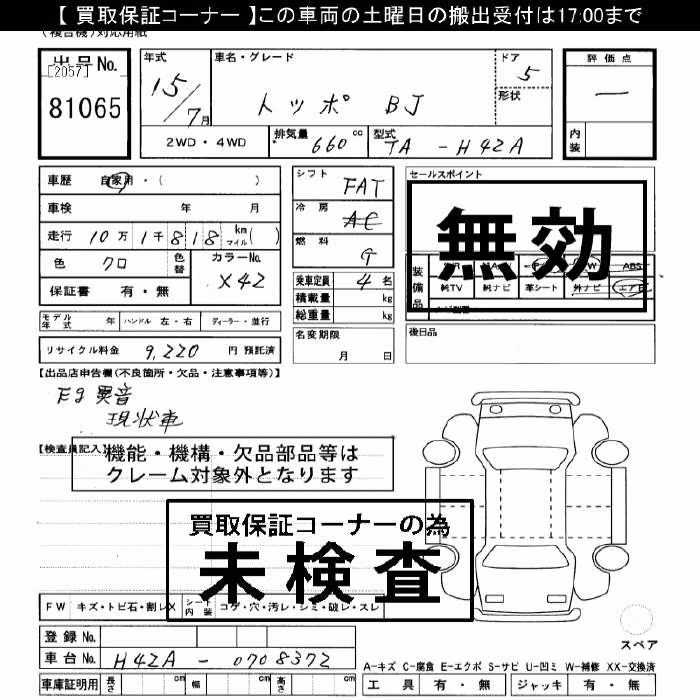 【 買取保証コーナー 】この車両の土曜日の搬出受付は17:00まで
(複合機)対応用紙
出品No.
[2057]
81065
年式
15/7月
車名・グレード
トッポ BJ
ドア
5
形状
2WD・4WD
排気量
660cc
型式
TA - H42A
評価点
―
内装
車歴 自家用・( )
車検 年 月
走行 10万1千818 km マイル( )
色 クロ
色替
カラーNo.
X42
保証書 有・無
シフト
FAT
冷房
AC
燃料
G
乗車定員 4名
積載量 kg
総重量 kg
セールスポイント
無効
装備品
ABS
純TV 純ナビ 革シート 外ナビ エアB
モデル年式 年 ハンドル 左・右 ディーラー・並行
名変期限
月 日
後日品
リサイクル料金 9,220 円 預託済
【出品店申告欄(不良箇所・欠品・注意事項等)】
Eg異音
現状車
【検査員記入】
機能・機構・欠品部品等は
クレーム対象外となります
買取保証コーナーの為
未検査
FW キズ・トビ石・割レX シート内装 コゲ・穴・汚レ・シミ・破レ・スレ
スペア
登録 No.
車台 No. H42A - 0708372
A-キズ C-腐食 E-エクボ S-サビ U-凹ミ W-補修 XX-交換済
車庫証明用 長さ cm 幅 cm 高さ cm
工具 有・無 ジャッキ 有・無